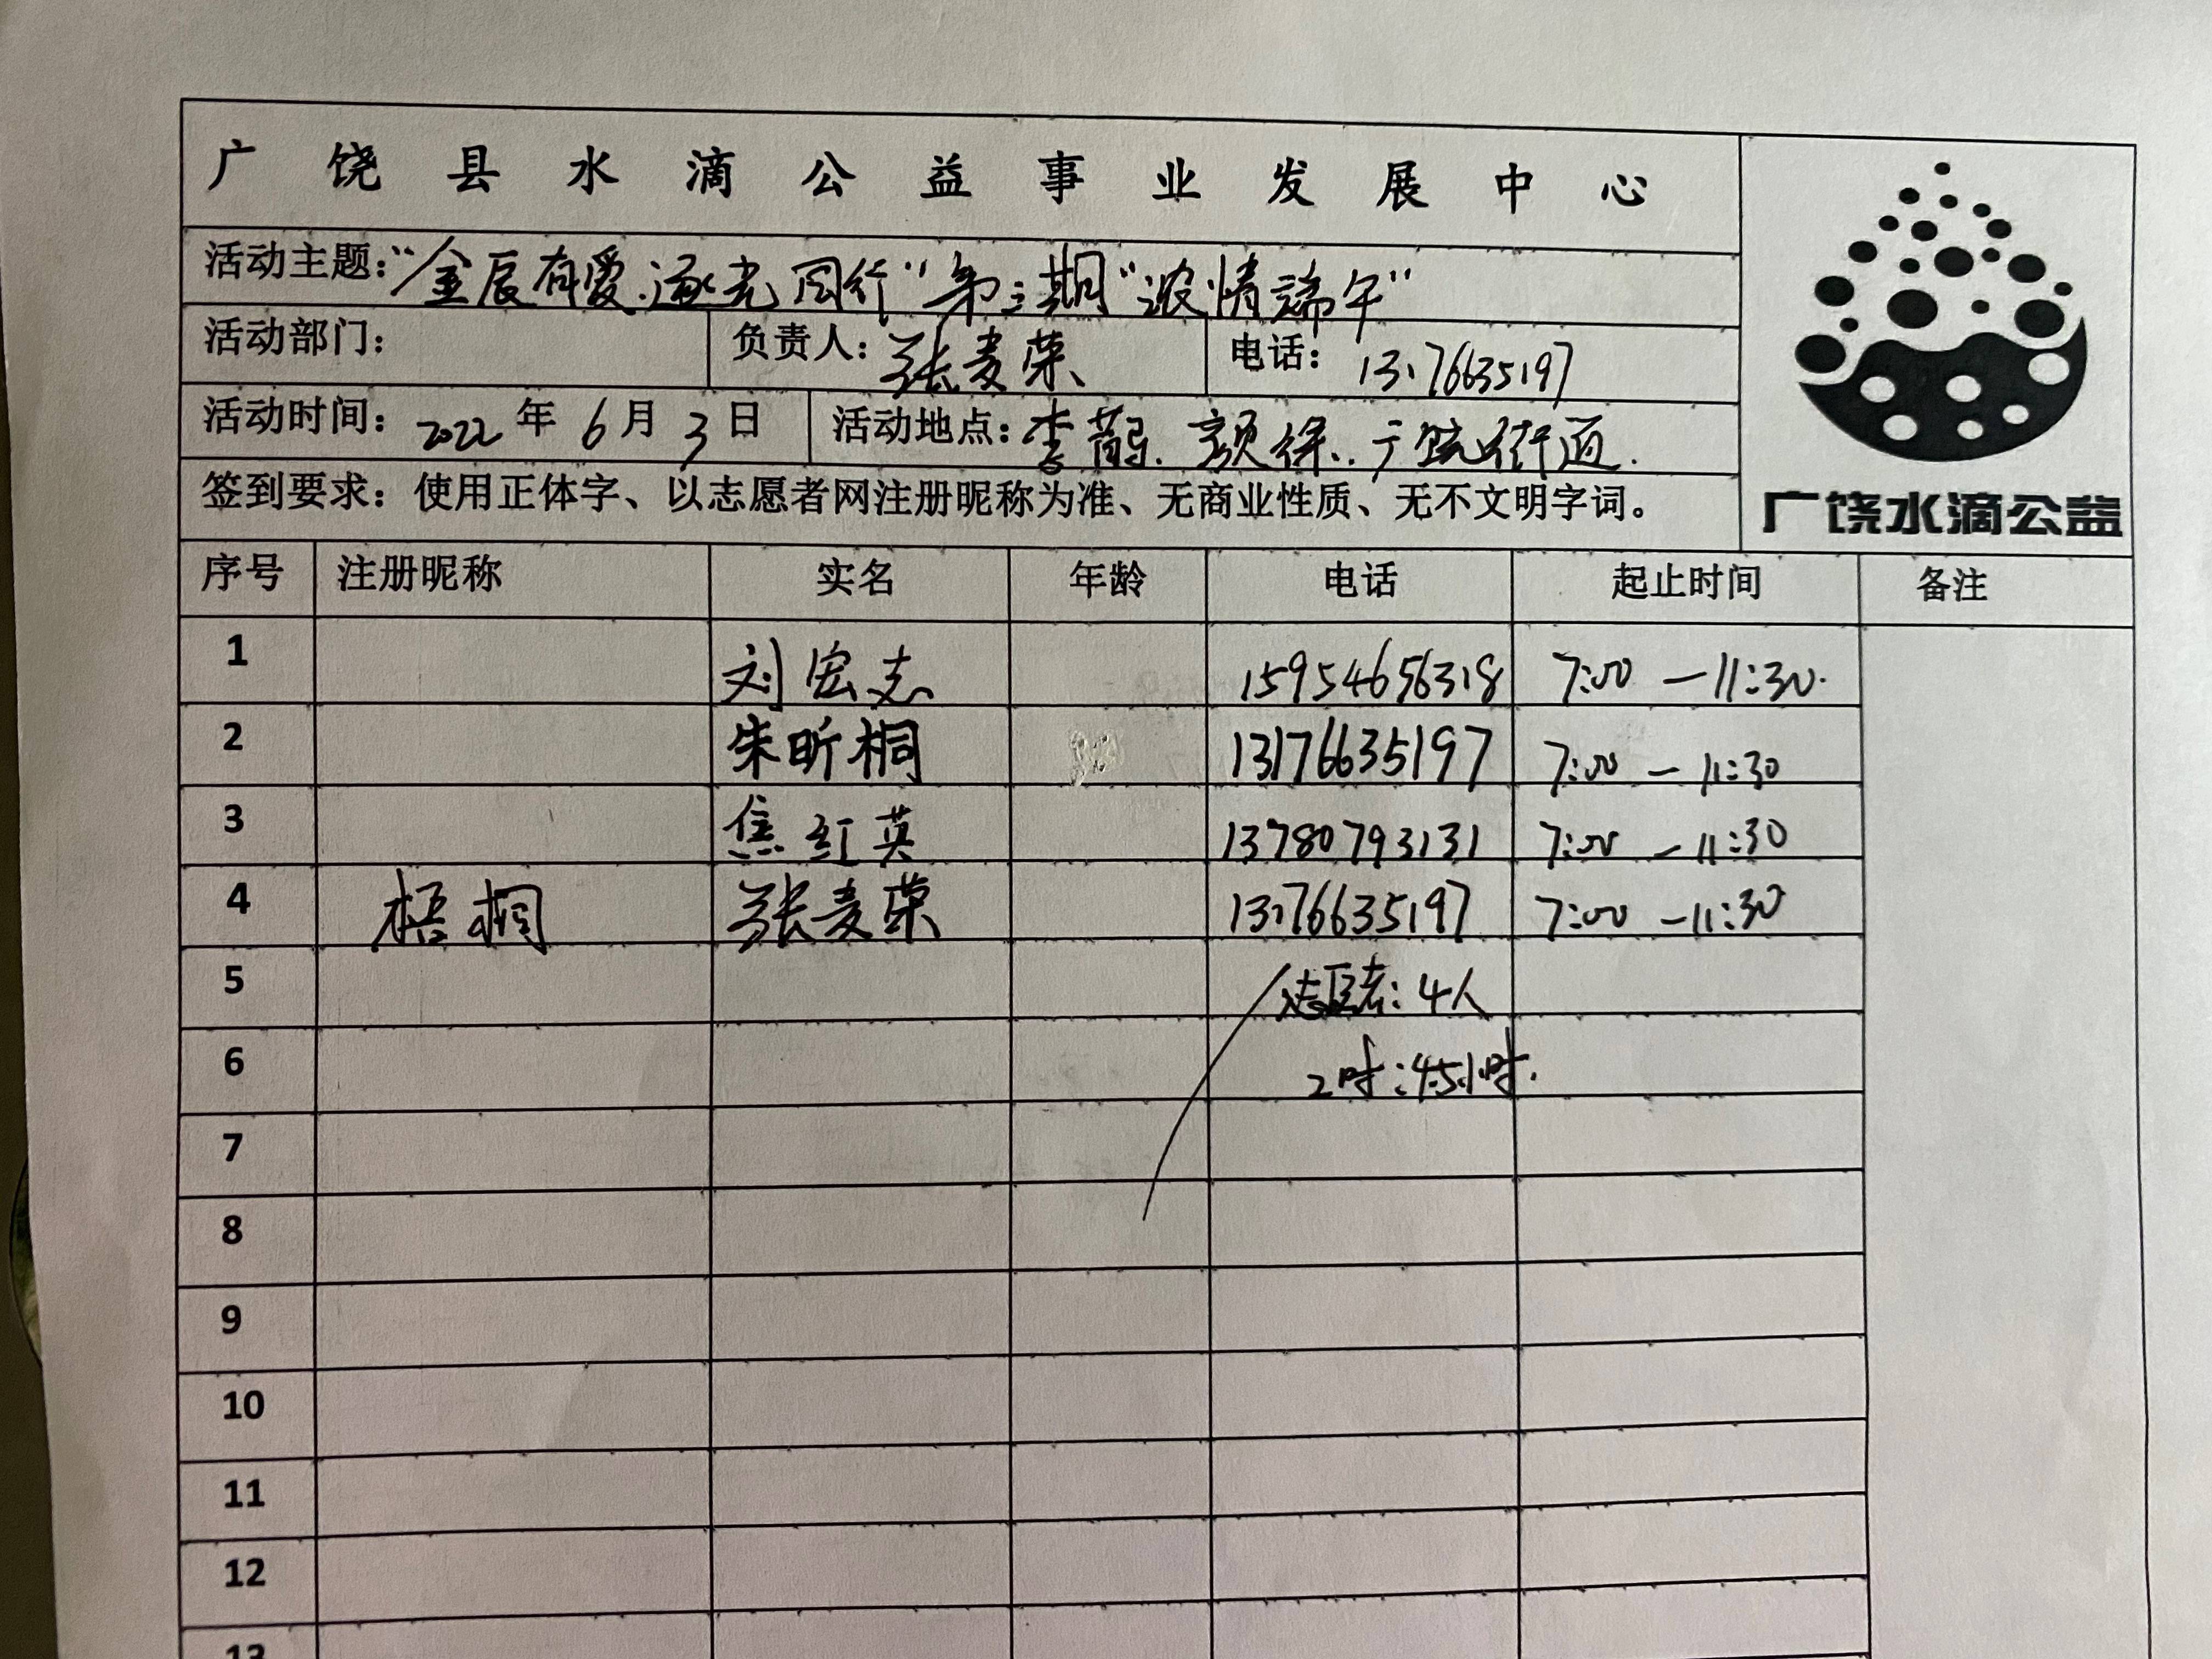 广饶县水滴公益事业发展中心
活动主题：“金辰有爱.逐光同行”第三期“浓情端午”
活动部门： 负责人：张麦荣 电话：13176635197
活动时间：2022年6月3日 活动地点：李鹊.颜徐..广饶街道.
签到要求：使用正体字、以志愿者网注册昵称为准、无商业性质、无不文明字词。
广饶水滴公益
序号 注册昵称 实名 年龄 电话 起止时间 备注
1 刘宏志 15954656318 7:00 —11:30.
2 朱昕桐 13176635197 7:00 — 11:30
3 焦红英 13780793131 7:00 — 11:30
4 梧桐 张麦荣 13176635197 7:00 —11:30
5 志愿者：4人
6 工时：4.5小时.
7
8
9
10
11
12
13